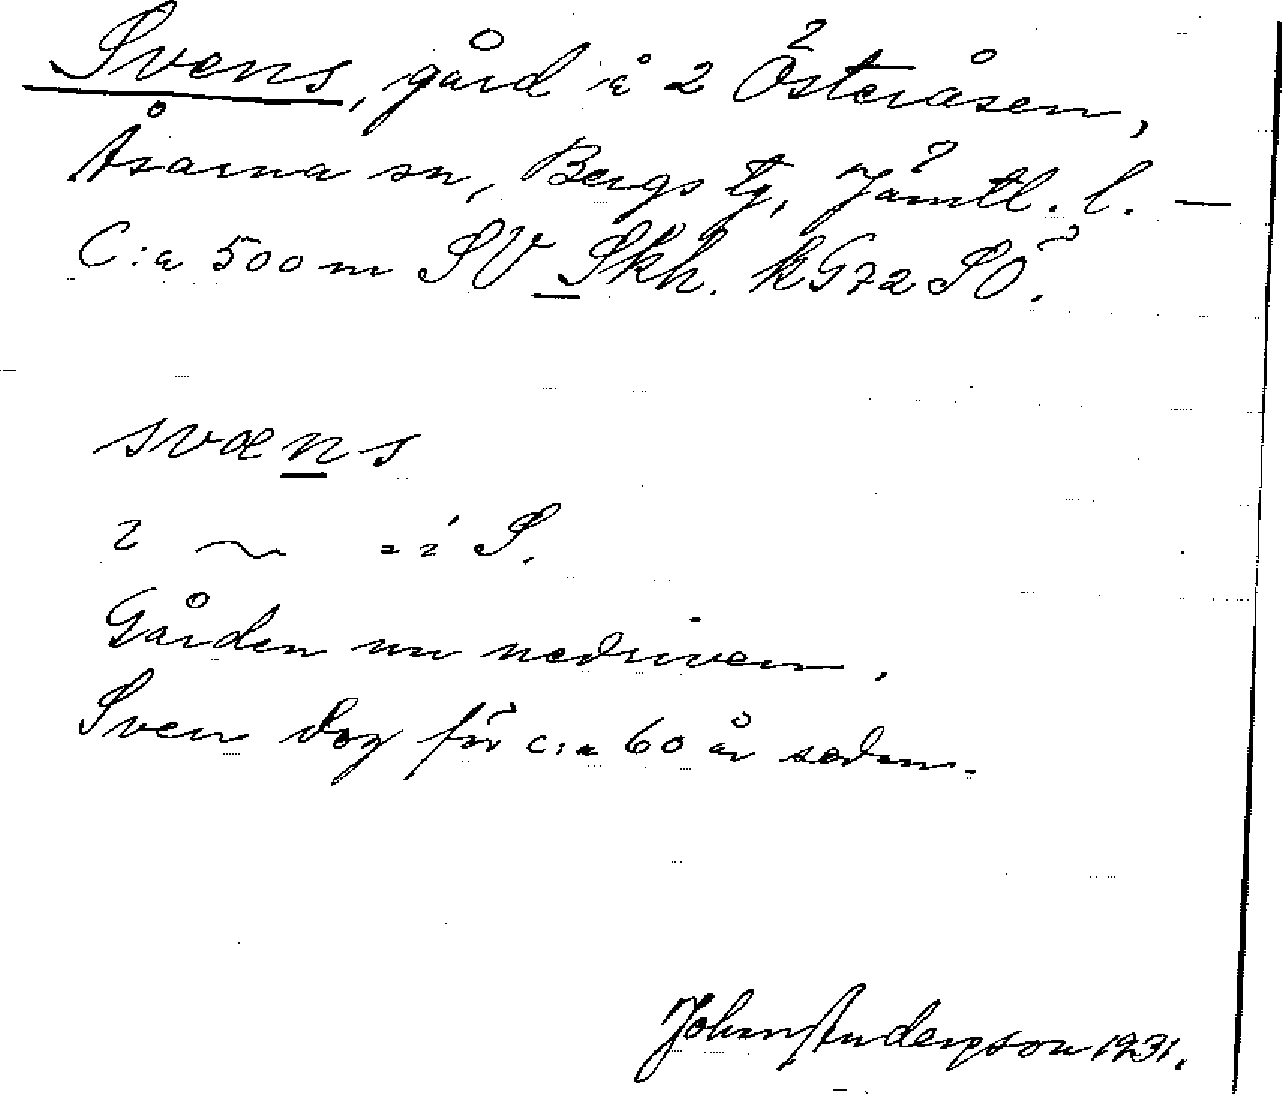 Svens, gård å 2 Österåsen,
Åsarna sn, Bergs tg, Jämtl. l. —
C:a 500 m SV Skh. kG72 SÖ.
svæns
i S.
Gården nu nedriven.
Sven dog för c:a 60 år sedan.
John Andersson 1931.